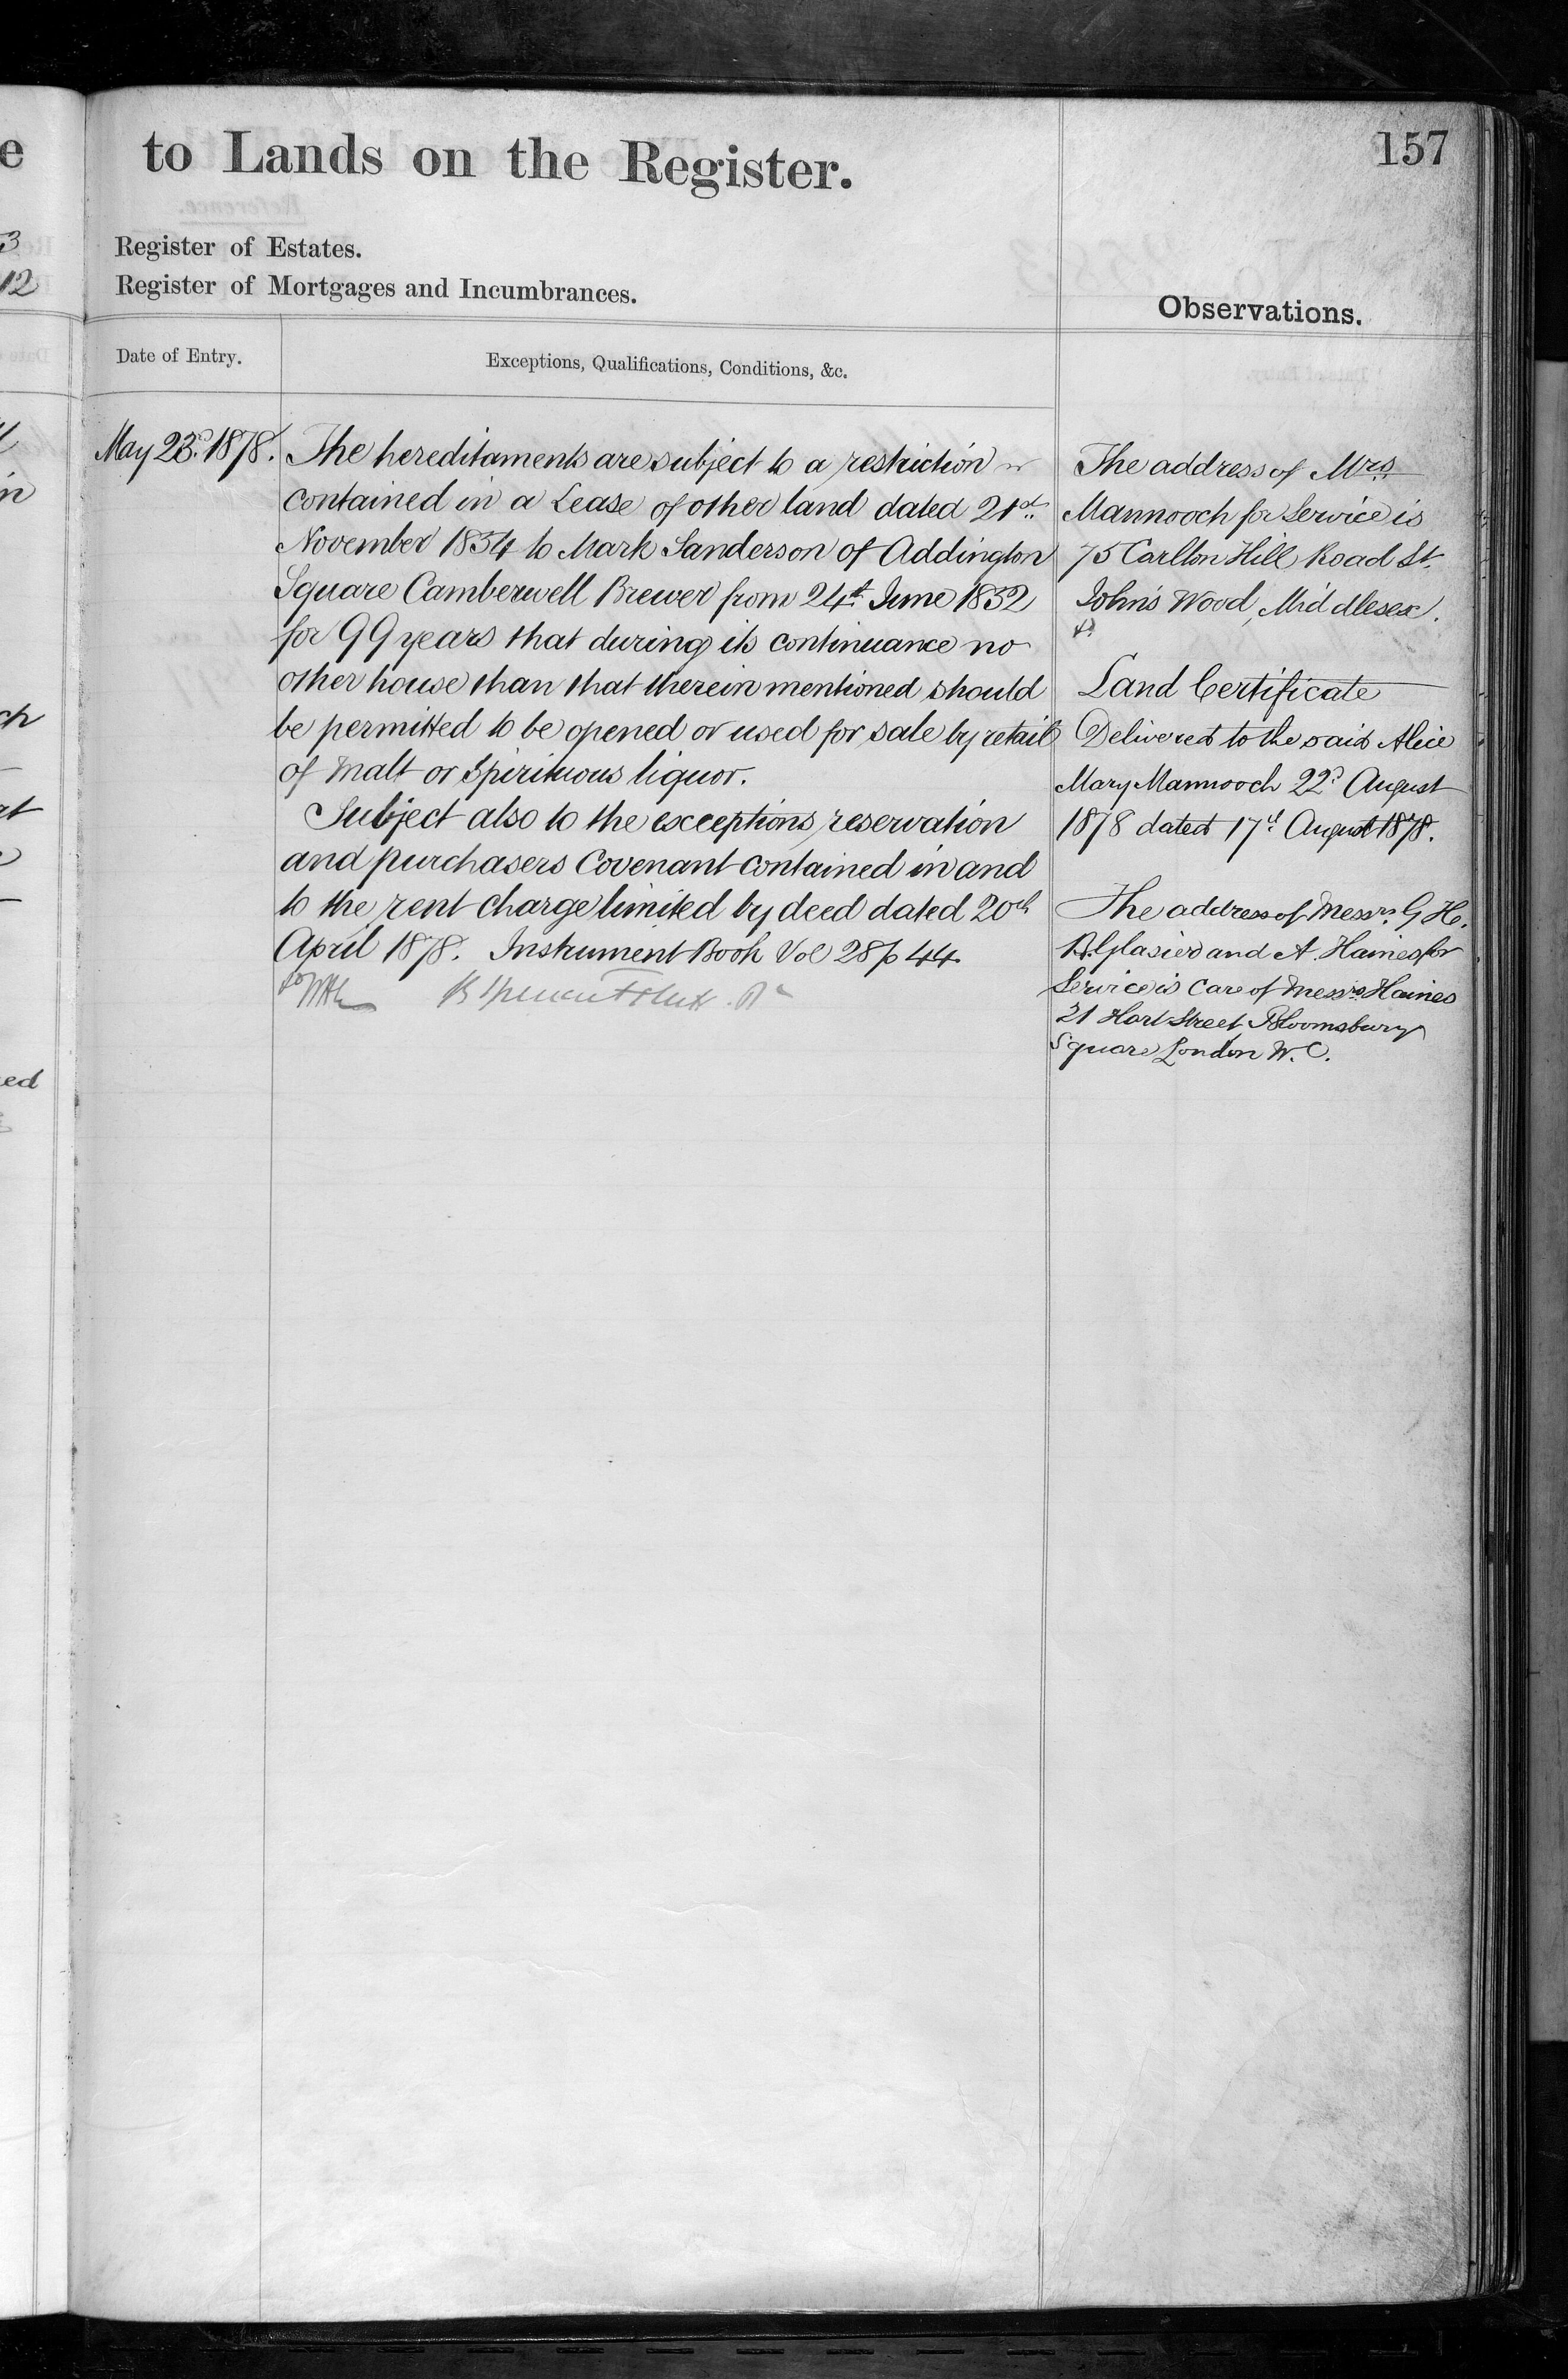 to Lands on the Register.
157
Register of Estates.
Register of Mortgages and Incumbrances.
Observations.
Date of Entry.
Exceptions, Qualifications, Conditions, &c.
May 23d. 1878.
The hereditaments are subject to a restriction
contained in a Lease of other land dated 21st
November 1834 to Mark Sanderson of Addington
Square Camberwell Brewer from 24th June 1832
for 99 years that during its continuance no
other house than that therein mentioned should
be permitted to be opened or used for sale by retail
of Malt or Spirituous liquor.
Subject also to the exceptions, reservation
and purchasers Covenant contained in and
to the rent charge limited by deed dated 20th
April 1878. Instrument Book Vol 28 p 44.
The address of Mrs.
Mannooch for Service is
75 Carlton Hill Road St.
John's Wood, Middlesex.
Land Certificate
Delivered to the said Alice
Mary Mannooch 22d August
1878 dated 17th August 1878.
The address of Messrs. G. H.
B. Glasier and A. Haines for
Service is Care of Messrs Haines
21 Hart Street, Bloomsbury
Square London W.C.
e
3
12
in
ch
ed